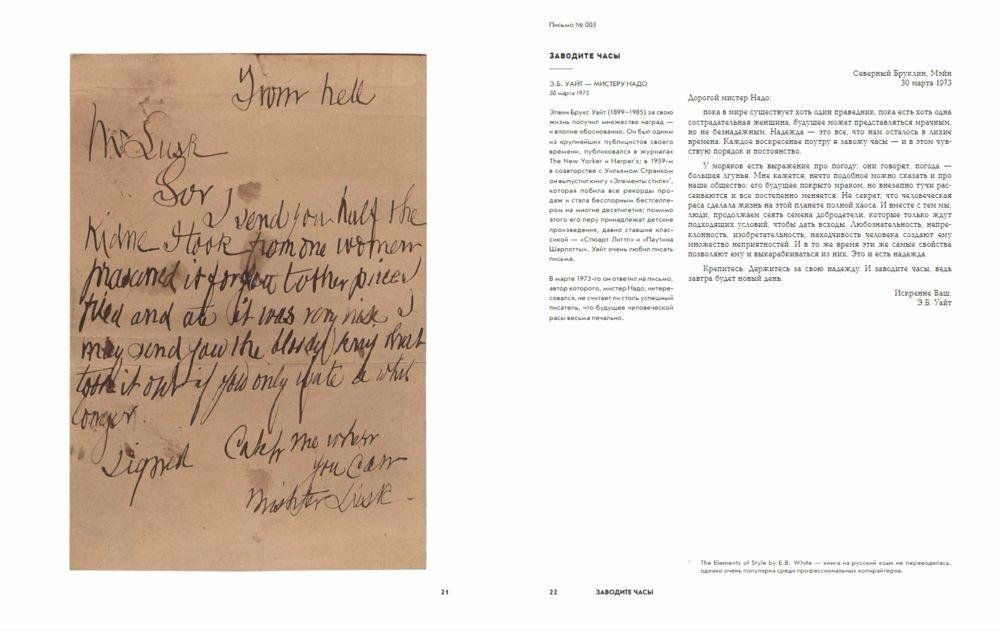 From hell
Mr Lusk
Sor
I send you half the
Kidne I took from one women
prasarved it for you tother piece I
fried and ate it was very nise I
may send you the bloody knif that
took it out if you only wate a whil
longer.
signed
Catch me when
you Can
Mishter Lusk.
21
Письмо № 003
ЗАВОДИТЕ ЧАСЫ
Э.Б. УАЙТ — МИСТЕРУ НАДО
30 марта 1973
Элвин Брукс Уайт (1899–1985) за свою
жизнь получил множество наград —
и вполне обоснованно. Он был одним
из крупнейших публицистов своего
времени, публиковался в журналах
The New Yorker и Harper's; в 1959-м
в соавторстве с Уильямом Странком
он выпустил книгу «Элементы стиля»¹,
которая побила все рекорды про-
даж и стала бесспорным бестселле-
ром на многие десятилетия; помимо
этого его перу принадлежат детские
произведения, давно ставшие клас-
сикой — «Стюарт Литтл» и «Паутина
Шарлотты». Уайт очень любил писать
письма.
В марте 1973-го он ответил на письмо,
автор которого, мистер Надо, интере-
совался, не считает ли столь успешный
писатель, что будущее человеческой
расы весьма печально.
Северный Бруклин, Мэйн
30 марта 1973
Дорогой мистер Надо:
пока в мире существует хоть один праведник, пока есть хоть одна
сострадательная женщина, будущее может представляться мрачным,
но не безнадежным. Надежда — это все, что нам осталось в лихие
времена. Каждое воскресенье поутру я завожу часы — и в этом чув-
ствую порядок и постоянство.
У моряков есть выражение про погоду: они говорят, погода —
большая лгунья. Мне кажется, нечто подобное можно сказать и про
наше общество: его будущее покрыто мраком, но внезапно тучи рас-
сеиваются и все постепенно проясняется. Не секрет, что человеческая
раса сделала жизнь на этой планете полной хаоса. И вместе с тем мы,
люди, продолжаем сеять семена добродетели, которые только ждут
подходящих условий, чтобы дать всходы. Любознательность, непре-
клонность, изобретательность, находчивость человека создают ему
множество неприятностей. И в то же время эти же самые свойства
позволяют ему и выкарабкиваться из них. Это и есть надежда.
Крепитесь. Держитесь за свою надежду. И заводите часы, ведь
завтра будет новый день.
Искренне Ваш,
Э.Б. Уайт
¹ The Elements of Style by E.B. White — книга на русский язык не переводилась,
однако очень популярна среди профессиональных копирайтеров.
22 ЗАВОДИТЕ ЧАСЫ